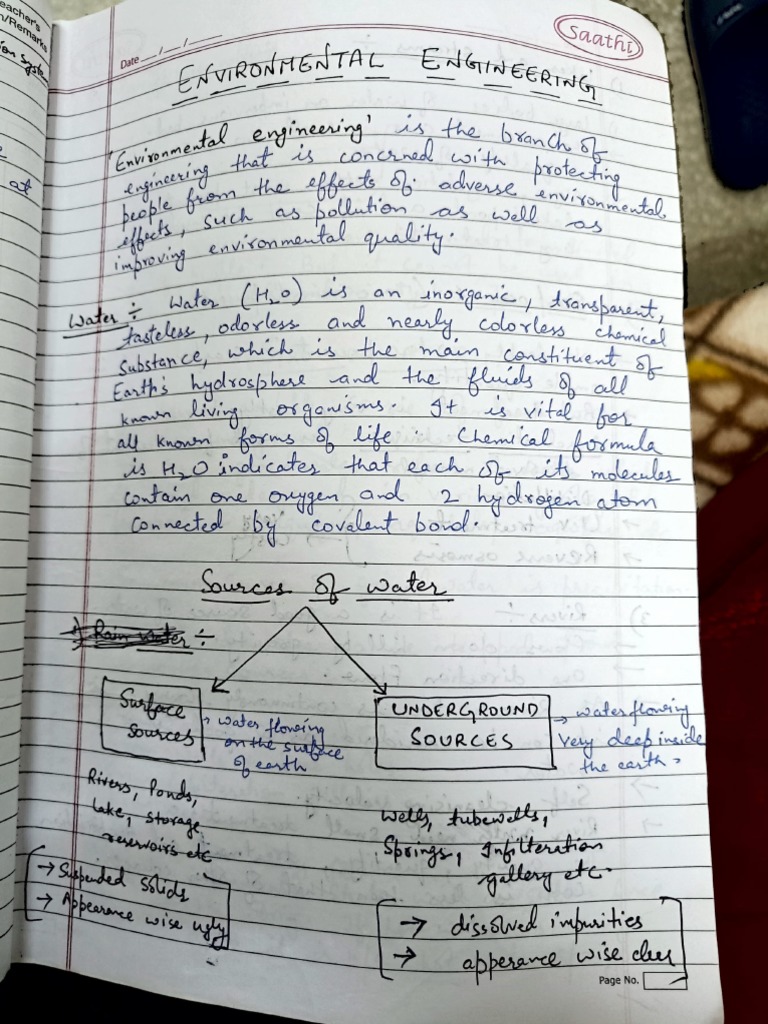 eacher's
n/Remarks
ion syste
at
Saathi
Date __/__/____
ENVIRONMENTAL ENGINEERING
'Environmental engineering' is the branch of
engineering that is concerned with protecting
people from the effects of adverse environmental
effects, such as pollution as well as
improving environmental quality.
Water ÷ Water (H2O) is an inorganic, transparent,
tasteless, odorless and nearly colorless chemical
substance, which is the main constituent of
Earth's hydrosphere and the fluids of all
known living organisms. It is vital for
all known forms of life. Chemical formula
is H2O indicates that each of its molecules
contain one oxygen and 2 hydrogen atom
connected by covalent bond.
Sources of water
Rain water ÷
Surface
sources
→ water flowing
on the surface
of earth
UNDERGROUND
SOURCES
→ water flowing
very deep inside
the earth.
Rivers, Ponds,
lake, storage
reservoirs etc
→ Suspended solids
→ Appearance wise ugly
Wells, tubewells,
Springs, Infilteration
gallery etc.
→ dissolved impurities
→ apperance wise clear
Page No.